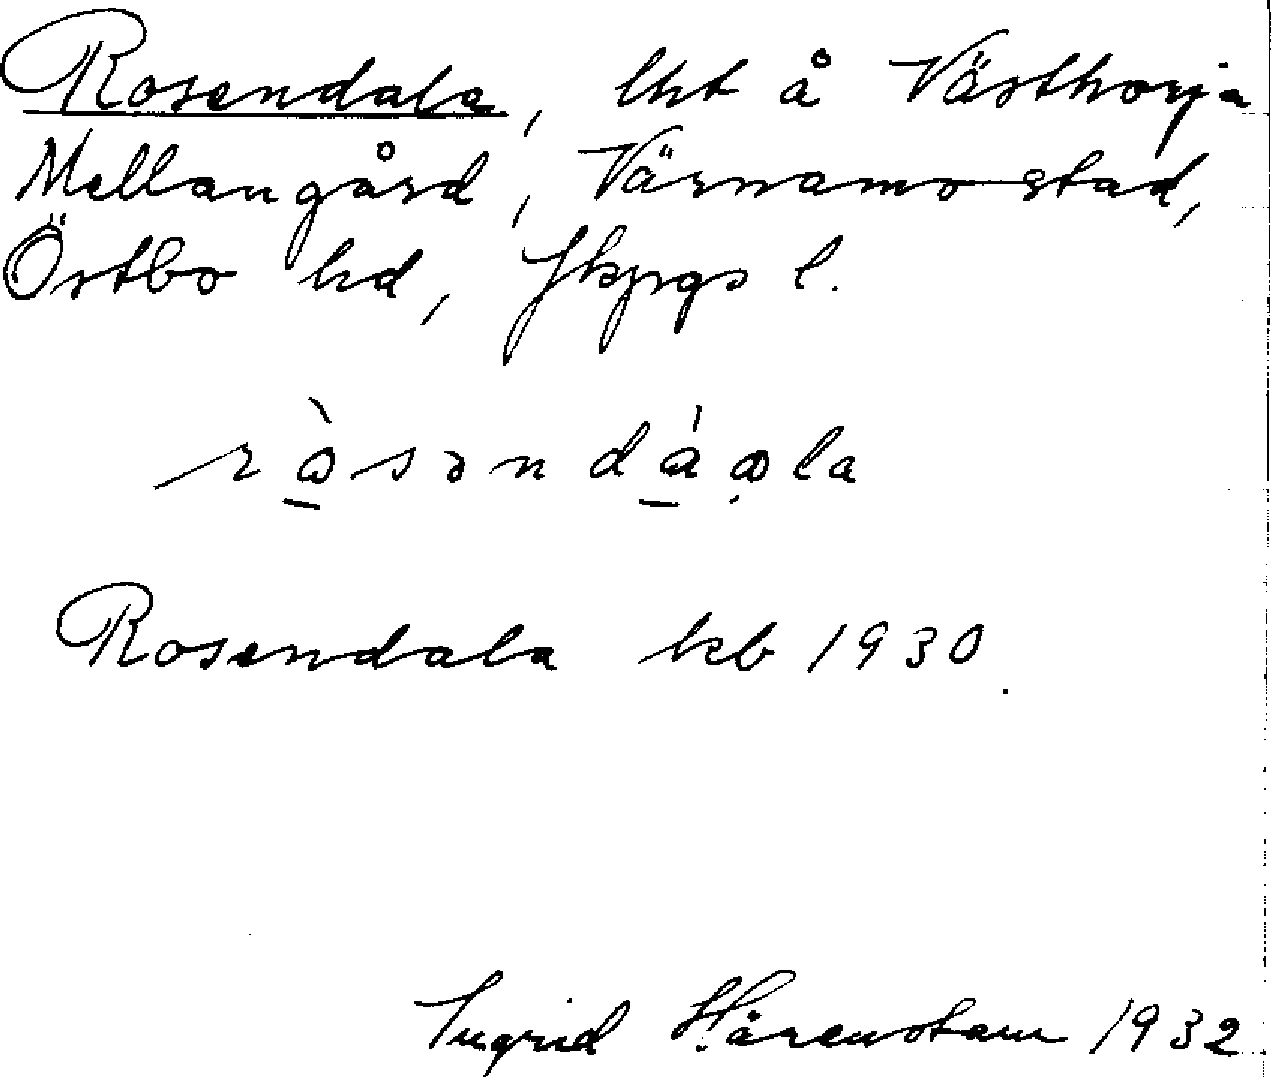 Rosendala, lht å Västhorja
Mellangård, Värnamo stad,
Östbo hd, Jkpgs l.
Rosendala kb 1930.
Ingrid Härenstam 1932